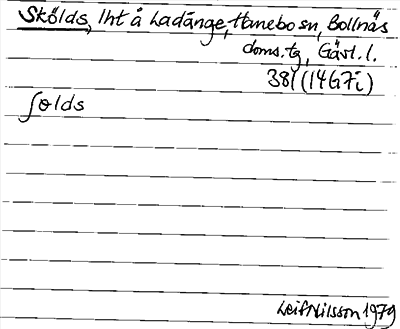 Skölds, lht å Ladänge, Hanebo sn, Bollnäs
doms.tg, Gävl. l.
381 (14G7i)
ʃɵlds
Leif Nilsson 1979